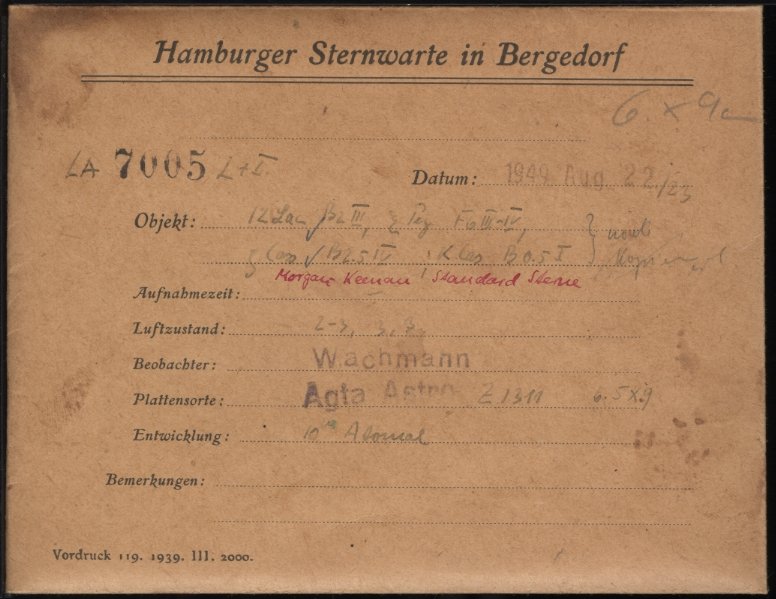 Hamburger Sternwarte in Bergedorf
6 x 9
LA 7005 L+I
Datum: 1949 Aug 22./23
Objekt: 12 Lac B2 III, ξ Peg F6 III-IV,
ζ Cas B2.5 IV κ Cas B0.5 I
Morgan Keenan Standard Sterne
Aufnahmezeit:
Luftzustand: 2-3,
Beobachter: Wachmann
Plattensorte: Agfa Astro Z 1311 6.5x9
Entwicklung: 10 Atomal
Bemerkungen:
Vordruck 119. 1939. III. 2000.